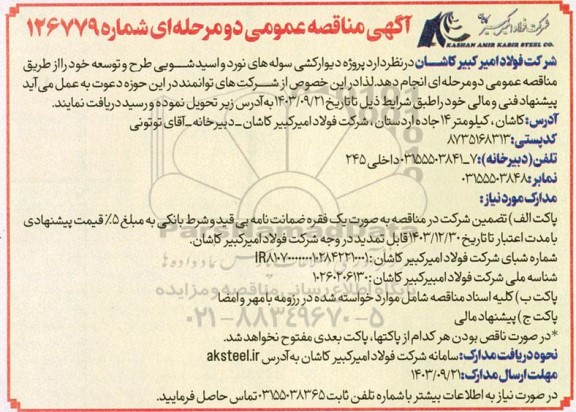 شرکت فولاد امیرکبیر کاشان
KASHAN AMIR KABIR STEEL CO.
آگهی مناقصه عمومی دو مرحله ای شماره ۱۲۶۷۷۹
شرکت فولاد امیر کبیر کاشان در نظر دارد پروژه دیوارکشی سوله های نورد و اسیدشویی طرح و توسعه خود را از طریق
مناقصه عمومی دو مرحله ای انجام دهد. لذا در این خصوص از شرکت های توانمند در این حوزه دعوت به عمل می آید
پیشنهاد فنی و مالی خود را طبق شرایط ذیل تا تاریخ ۱۴۰۳/۰۹/۲۱ به آدرس زیر تحویل نموده و رسید دریافت نمایند.
آدرس: کاشان، کیلومتر ۱۴ جاده اردستان، شرکت فولاد امیرکبیر کاشان - دبیرخانه - آقای توتونی
کدپستی: ۸۷۳۵۱۶۸۳۱۳
تلفن (دبیرخانه): ۷_۰۳۱۵۵۵۰۳۸۴۱ داخلی ۲۴۵
نمابر: ۰۳۱۵۵۵۰۳۸۴۸
مدارک مورد نیاز:
پاکت الف) تضمین شرکت در مناقصه به صورت یک فقره ضمانت نامه بی قید و شرط بانکی به مبلغ ۵٪ قیمت پیشنهادی
با مدت اعتبار تا تاریخ ۱۴۰۳/۱۲/۳۰ قابل تمدید در وجه شرکت فولاد امیرکبیر کاشان.
شماره شبای شرکت فولاد امیرکبیر کاشان:
شناسه ملی شرکت فولاد امیرکبیر کاشان: ۱۰۲۶۰۲۰۶۱۳۰
پاکت ب) کلیه اسناد مناقصه شامل موارد خواسته شده در رزومه با مهر و امضا
پاکت ج) پیشنهاد مالی
*در صورت ناقص بودن هر کدام از پاکتها، پاکت بعدی مفتوح نخواهد شد.
نحوه دریافت مدارک: سامانه شرکت فولاد امیرکبیر کاشان به آدرس aksteel.ir
مهلت ارسال مدارک: ۱۴۰۳/۰۹/۲۱
در صورت نیاز به اطلاعات بیشتر با شماره تلفن ثابت ۰۳۱۵۵۰۳۸۳۶۵ تماس حاصل فرمایید.
ParsNamadData
پایگاه اطلاع رسانی مناقصه و مزایده
۰۲۱-۸۸۳۴۹۶۷۰-۵